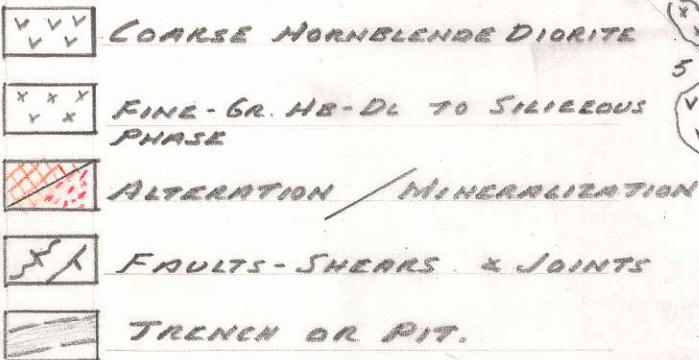 COARSE HORNBLENDE DIORITE
5
FINE-GR. HB-DI TO SILICEOUS
PHASE
ALTERATION / MINERALIZATION
FAULTS-SHEARS & JOINTS
TRENCH OR PIT.